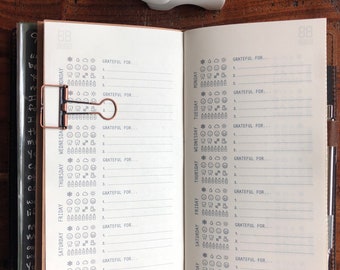 GRATEFUL FOR...
1.
2.
3.
MONDAY
GRATEFUL FOR...
1.
2.
3.
GRATEFUL FOR...
1.
2.
3.
WEDNESDAY
GRATEFUL FOR...
1.
2.
3.
THURSDAY
GRATEFUL FOR...
1.
2.
3.
FRIDAY
GRATEFUL FOR...
1.
2.
3.
SATURDAY
GRATEFUL FOR...
1.
2.
3.
MONDAY
GRATEFUL FOR...
1.
2.
3.
TUESDAY
GRATEFUL FOR...
1.
2.
3.
WEDNESDAY
GRATEFUL FOR...
1.
2.
3.
THURSDAY
GRATEFUL FOR...
1.
2.
3.
FRIDAY
GRATEFUL FOR...
1.
2.
3.
SATURDAY
GRATEFUL FOR...
1.
2.
3.